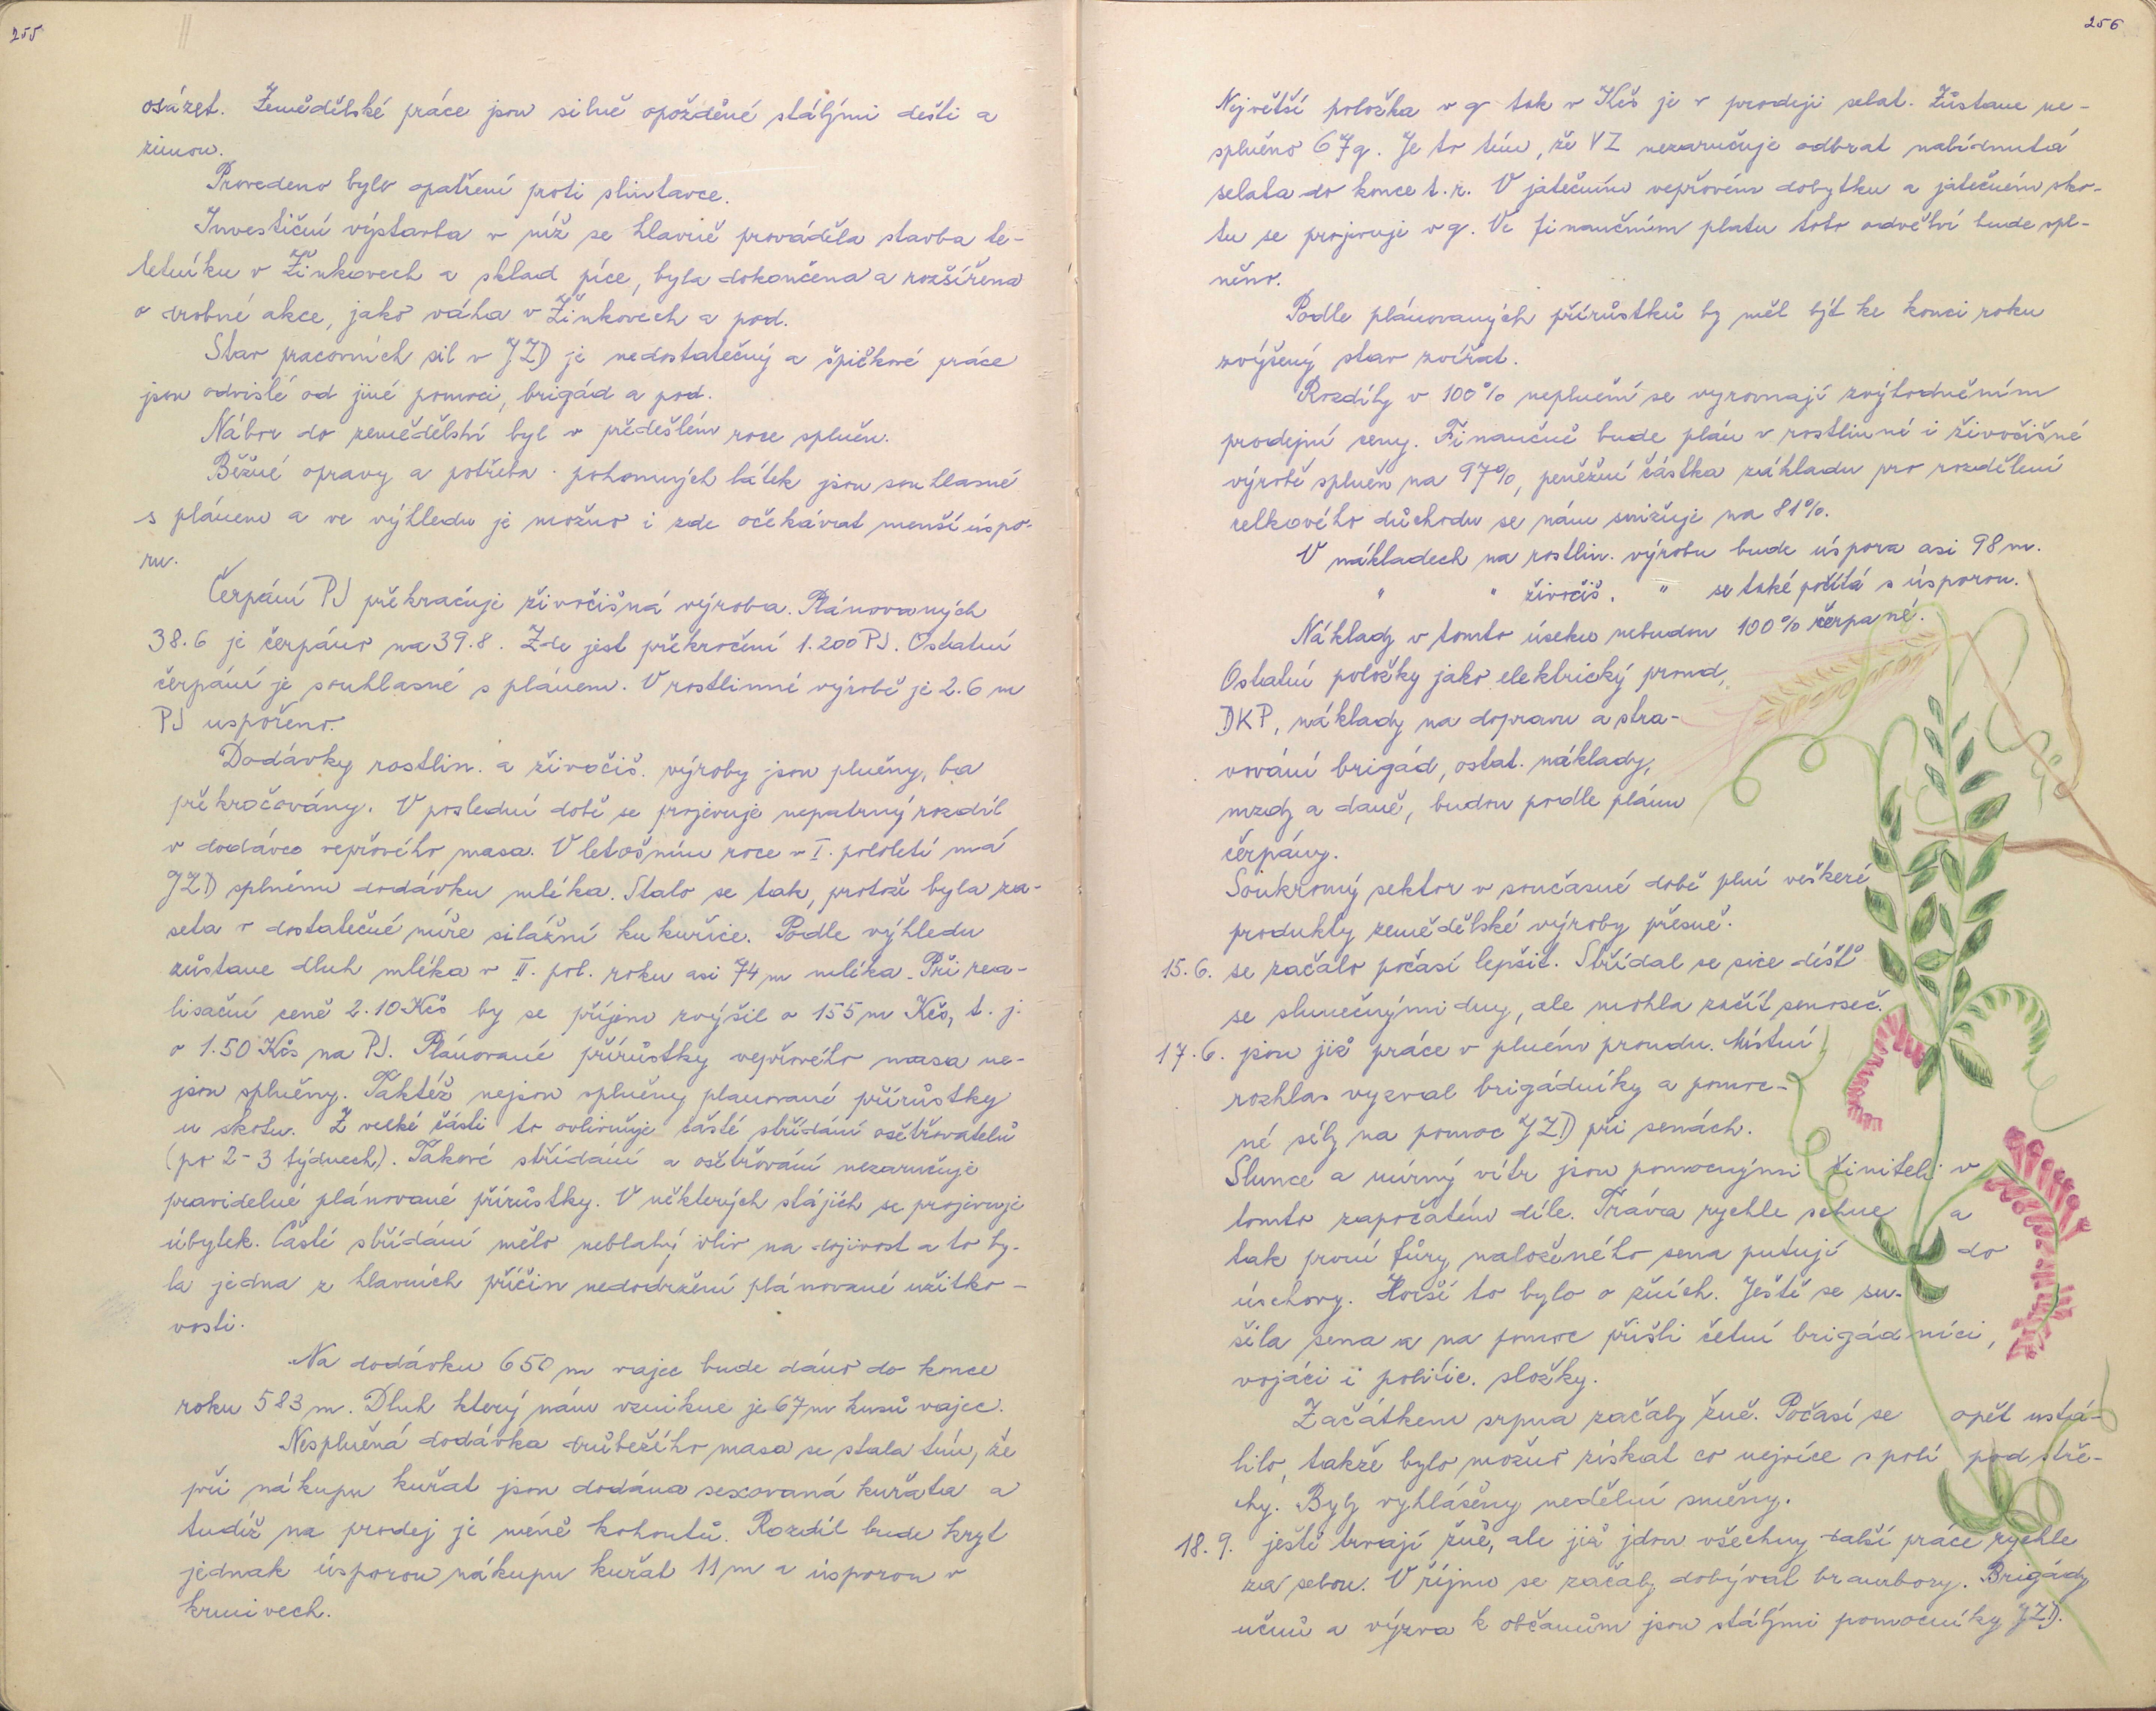 255
osázet. Zemědělské práce jsou silně opožděné stálými dešti a
zimou.
Provedeno bylo opatření proti slintavce.
Investiční výstavba v níž se hlavně prováděla stavba te-
letníku v Žinkovech a sklad píce, byla dokončena a rozšířena
o drobné akce, jako váha v Žinkovech a pod.
Stav pracovních sil v JZD je nedostatečný a špičkové práce
jsou odvislé od jiné pomoci, brigád a pod.
Nábor do zemědělství byl v předešlém roce splněn.
Běžné opravy a potřeba pohonných látek jsou souhlasné
s plánem a ve výhledu je možno i zde očekávat menší úspo-
ru.
Čerpání PJ překračuje živočišná výroba. Plánovaných
38.6 je čerpáno na 39.8. Zde jest překročení 1.200 PJ. Ostatní
čerpání je souhlasné s plánem. V rostlinné výrobě je 2.6 m
PJ uspořeno.
Dodávky rostlin. a živočiš. výroby jsou plněny, ba
překročovány. V poslední době se projevuje nepatrný rozdíl
v dodávce vepřového masa. V letošním roce v I. pololetí má
JZD splněnu dodávku mléka. Stalo se tak, protože byla za-
seta v dostatečné míře silážní kukuřice. Podle výhledu
zůstane dluh mléka v II. pol. roku asi 74 m mléka. Při rea-
lisační ceně 2.10 Kčs by se příjem zvýšil o 155 m Kčs, t. j.
o 1.50 Kčs na PJ. Plánované přírůstky vepřového masa ne-
jsou splněny. Taktéž nejsou splněny planované přírůstky
u skotu. Z velké části to ovlivňuje časté střídání ošetřovatelů
(po 2-3 týdnech). Takové střídání a ošetřování nezaručuje
pravidelné plánované přírůstky. V některých stájích se projevuje
úbytek. Časté střídání mělo neblahý vliv na dojivost a to by-
la jedna z hlavních příčin nedodržení plánované užitko-
vosti.
Na dodávku 650 m vajec bude dáno do konce
roku 583 m. Dluh který nám vznikne je 67 m kusů vajec.
Nesplněná dodávka drůbežího masa se stala tím, že
při nákupu kuřat jsou dodána sexovaná kuřata a
tudíž na prodej je méně kohoutů. Rozdíl bude kryt
jednak úsporou nákupu kuřat 11 m a úsporou v
krmivech.
256
Největší položka v q tak v Kčs je v prodeji selat. Zůstane ne-
splněno 67 q. Je to tím, že VZ nezaručuje odbrat nabídnutá
selata do konce t. r. V jatečním vepřovém dobytku a jatečném sko-
tu se projevuje v q. Ve finančním platu toto odvětví bude spl-
něno.
Podle plánovaných přírůstků by měl být ke konci roku
zvýšený stav zvířat.
Rozdíly v 100% neplnění se vyrovnají zvýhodněním
prodejní ceny. Finančně bude plán v rostlinné i živočišné
výrobě splněn na 97%, peněžní částka základu pro rozdělení
celkového důchodu se nám snižuje na 81%.
V nákladech na rostlin. výrobu bude úspora asi 98 m.
" " živočiš. " se také počítá s úsporou.
Náklady v tomto úseku nebudou 100% čerpané.
Ostatní položky jako elektrický proud,
DKP, náklady na dopravu a stra-
vování brigád, ostat. náklady,
mzdy a daně, budou podle plánu
čerpány.
Soukromý sektor v současné době plní veškeré
produkty zemědělské výroby přesně.
15. 6. se začalo počasí lepšit. Střídal se sice déšť
se slunečnými dny, ale mohla začít senoseč.
17. 6. jsou již práce v plném proudu. Místní
rozhlas vyzval brigádníky a pomoc-
né síly na pomoc JZD při senách.
Slunce a mírný vítr jsou pomocnými činiteli v
tomto započatém díle. Tráva rychle schne a
tak první fůry naloženého sena putují do
úschovy. Horší to bylo o žních. Ještě se su-
šila sena a na pomoc přišli četní brigádníci,
vojáci i politic. složky.
Začátkem srpna začaly žně. Počasí se opět ustá-
lilo, takže bylo možno získat co nejvíce s polí pod stře-
chy. Byly vyhlášeny nedělní směny.
18. 9. ještě trvají žně, ale již jdou všechny další práce rychle
za sebou. V říjnu se začaly dobývat brambory. Brigády
učňů a výzva k občanům jsou stálými pomocníky JZD.